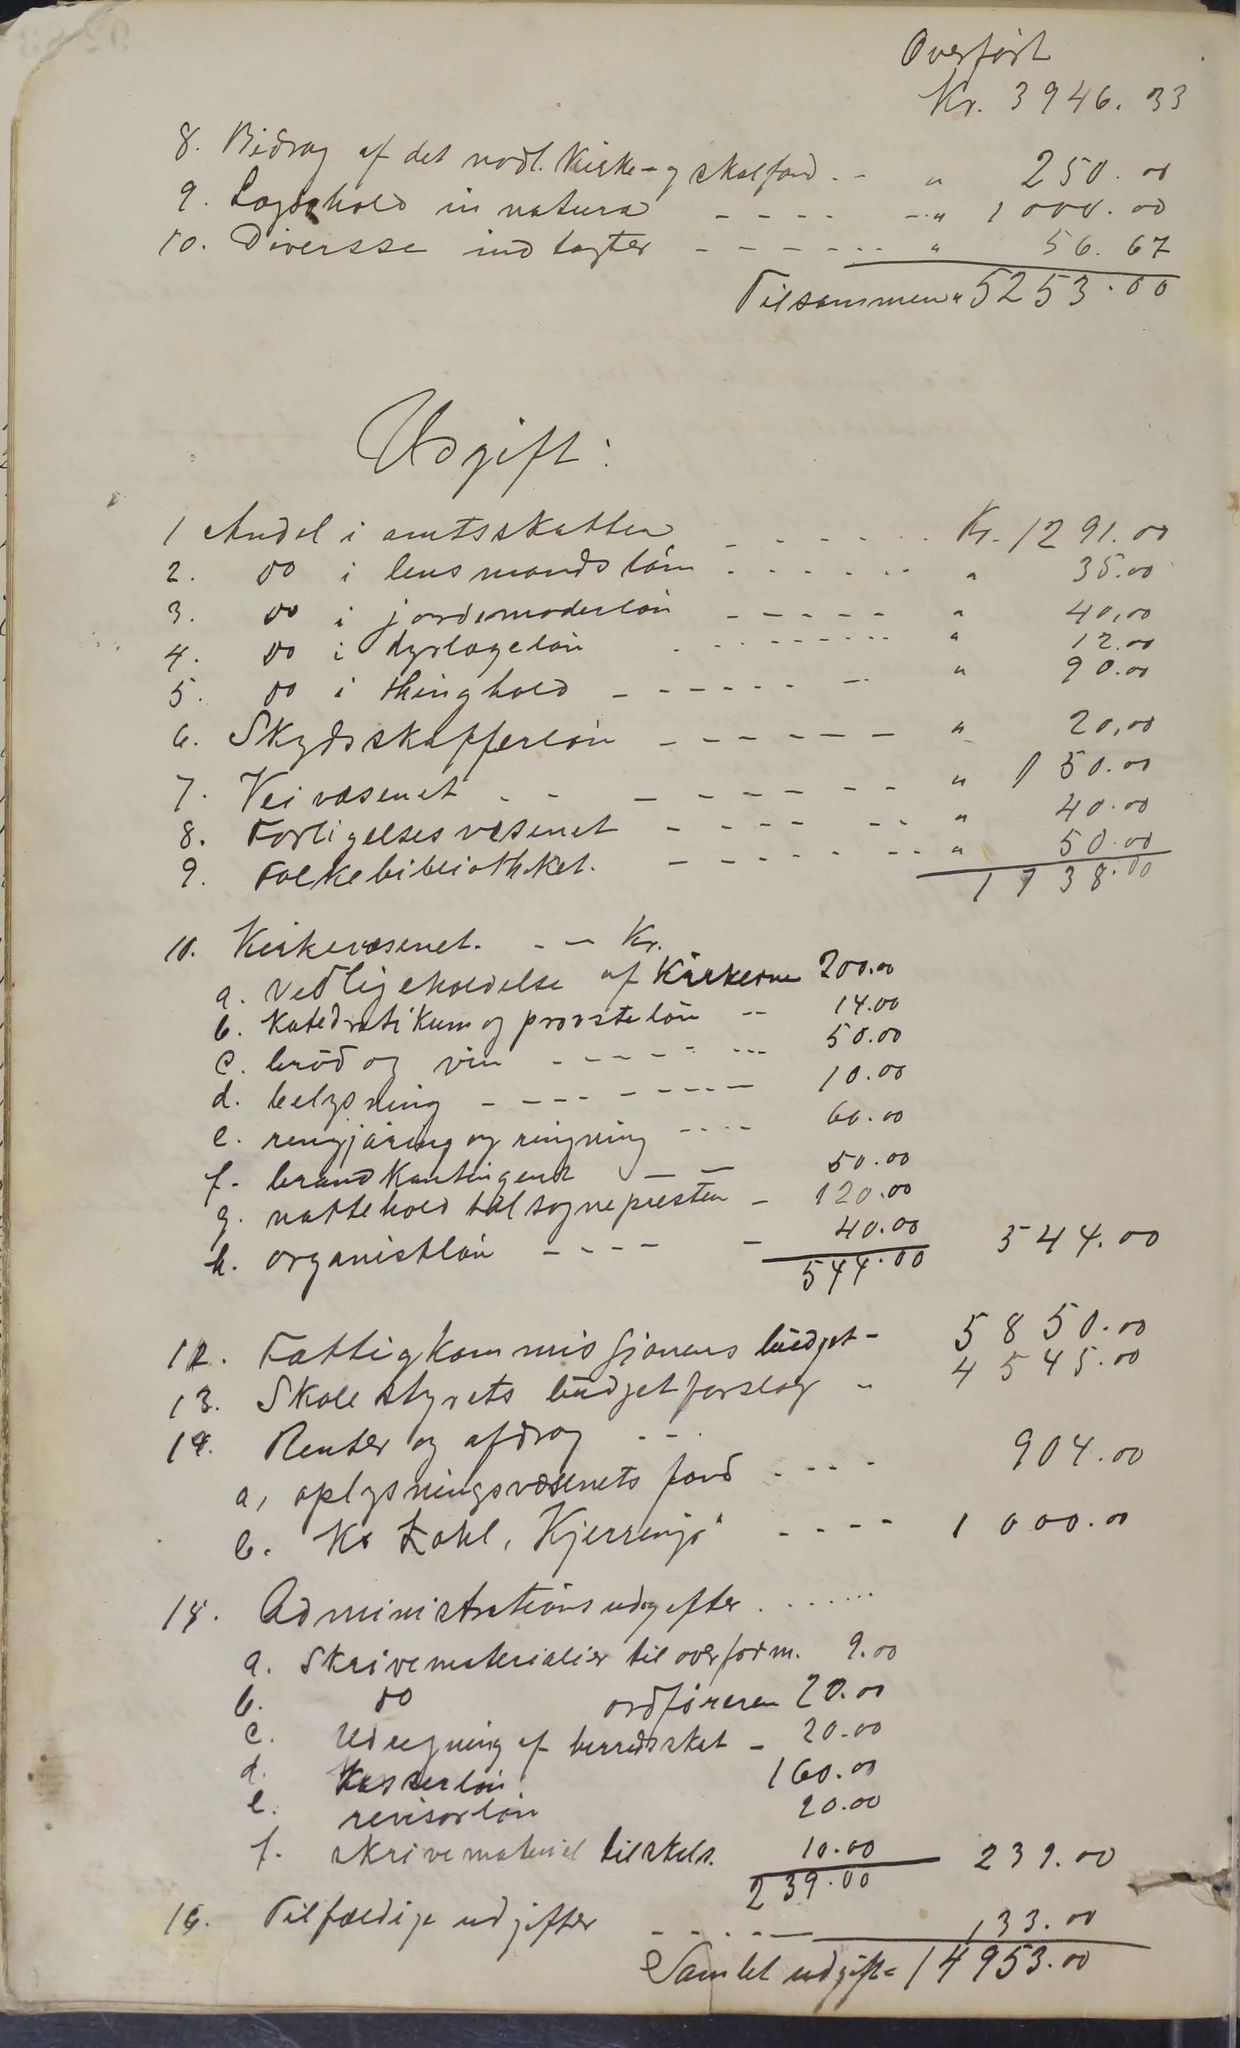 Overført
Kr. 3946.33
8. Bidrag af det nodl. Kirke- og skolefond. - " 250.00
9. Lægdehold in natura - - - - - " 1000.00
10. Diversse indtægter - - - - - " 56.67
Tilsammen " 5253.00
Udgift:
1 Andel i amtsskatten - - - - - - Kr. 1291.00
2. do i lensmandsløn - - - - - - " 35.00
3. do i jordemoderløn - - - - - " 40,00
4. do i dyrlægeløn - - - - - - " 12.00
5. do i thinghold - - - - - - " 90.00
6. Skydsskafferløn - - - - - - " 20,00
7. Veivæsenet - - - - - - - - " 150.00
8. Forligelsesvæsenet - - - - - - " 40.00
9. Folkebibliotheket. - - - - - - " 50.00
1738.00
10. Kirkevæsenet. - - Kr.
a. Vedligeholdelse af Kirkerne 200.00
b. Katedratikum og provsteløn - 14.00
c. brød og vin - - - - - - 50.00
d. belysning - - - - - - - 10.00
e. rengjøring og ringning - - - - 60.00
f. brandkontingent - - 50.00
g. nattehold til sognepresten - 120.00
h. organistløn - - - - - 40.00 544.00
544.00
12. Fattigkommissjonens budget - 5850.00
13. Skolestyrets budgetforslag - 4545.00
14. Renter og afdrag - - -
a, oplysningsvæsenets fond - - - - 904.00
b. K. Zahl, Kjerringø - - - - 1000.00
15. Administrationsudgifter - - - - - -
a. Skrivematerialier til overform. 9.00
b. do ordføreren 20.00
c. Udregning af herredsskat - 20.00
d. Kassererløn 160.00
e. revisorløn 20.00
f. skrivemateriel til skols. 10.00 239.00
239.00
16. Tilfældige udgifter - - - - - 133.00
Samlet udgift = 14953.00